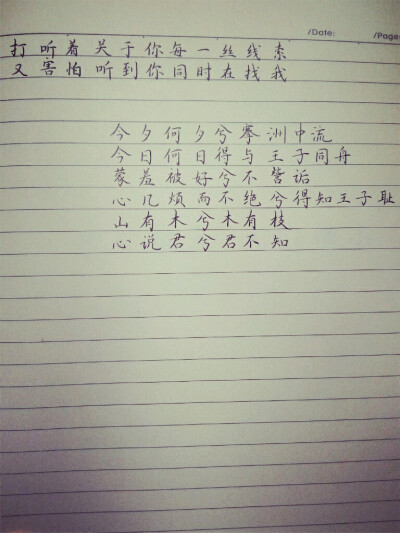 /Date: /Page:
打听着关于你每一丝线索
又害怕听到你同时在找我
今夕何夕兮搴洲中流
今日何日得与王子同舟
蒙羞被好兮不訾诟
心几烦而不绝兮得知王子耻
山有木兮木有枝
心说君兮君不知